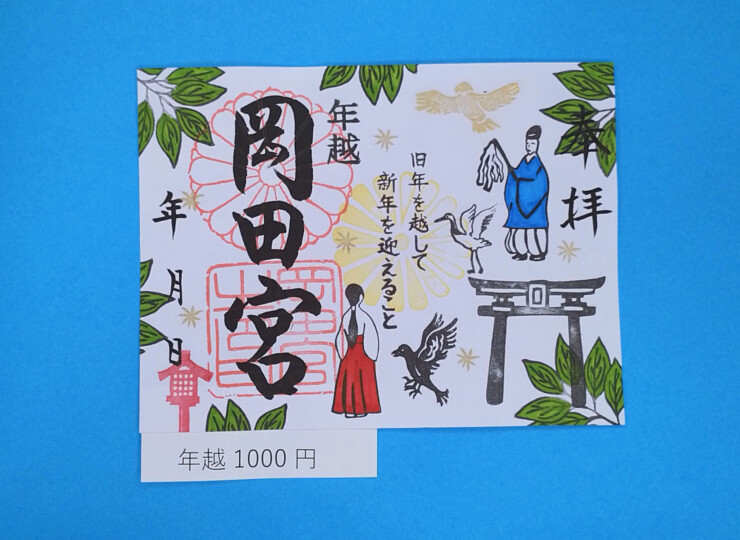 奉拝
旧年を越して
新年を迎えること
年越
岡田宮
年月日
年越 1000 円